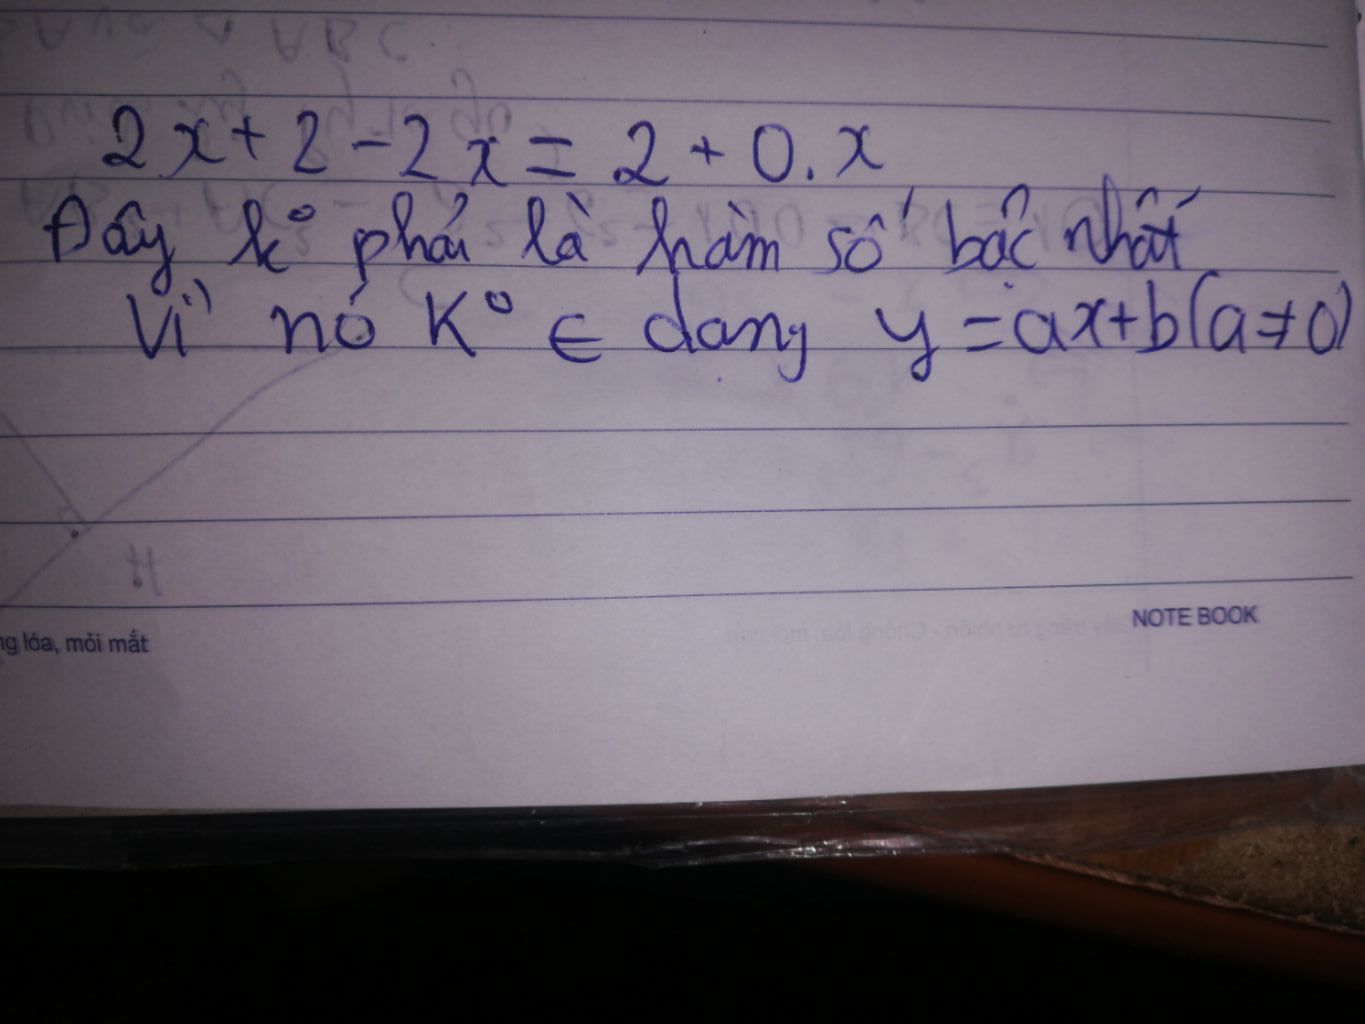 2x + 2 - 2x = 2 + 0.x
Đây k° phải là hàm số bậc nhất
Vì nó K° ∈ dạng y = ax+b (a≠0)
H
NOTE BOOK
ng lóa, mỏi mắt